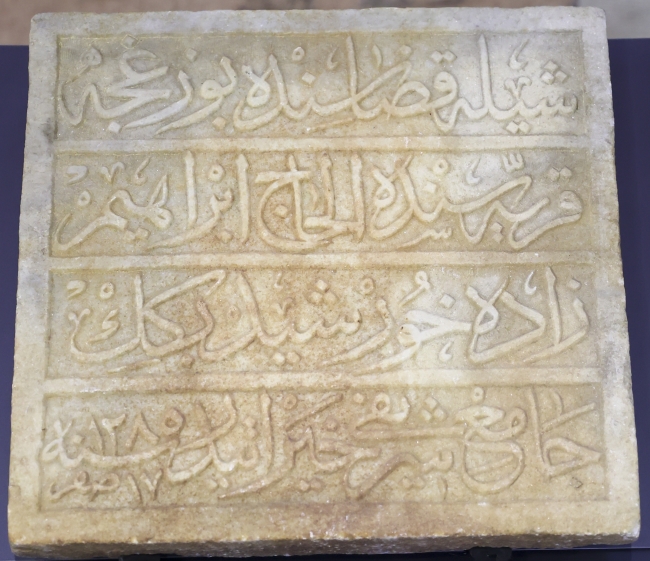 شيله قضاسنده بوزغجه
قريه سنده الحاج ابراهيم
زاده خورشيد بكك
جامع شريفى خيراتيدر سنه ١٢٨٥
١٧ صفر